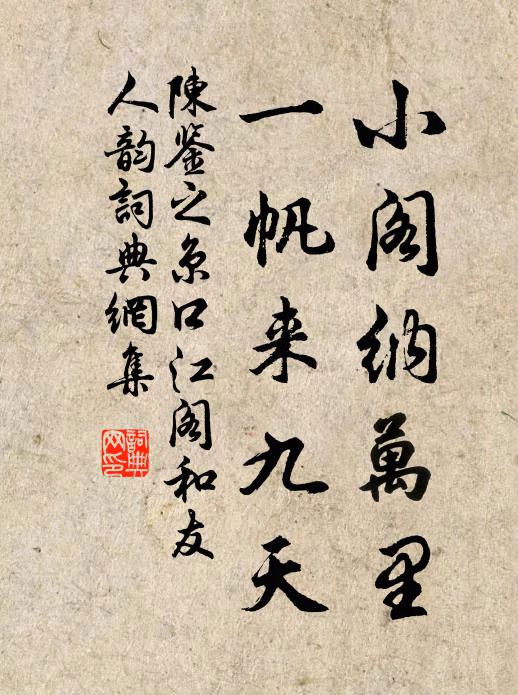 小阁纳萬里
一帆来九天
陳鉴之京口江阁和友
人韵詞典網集
詞典
网印